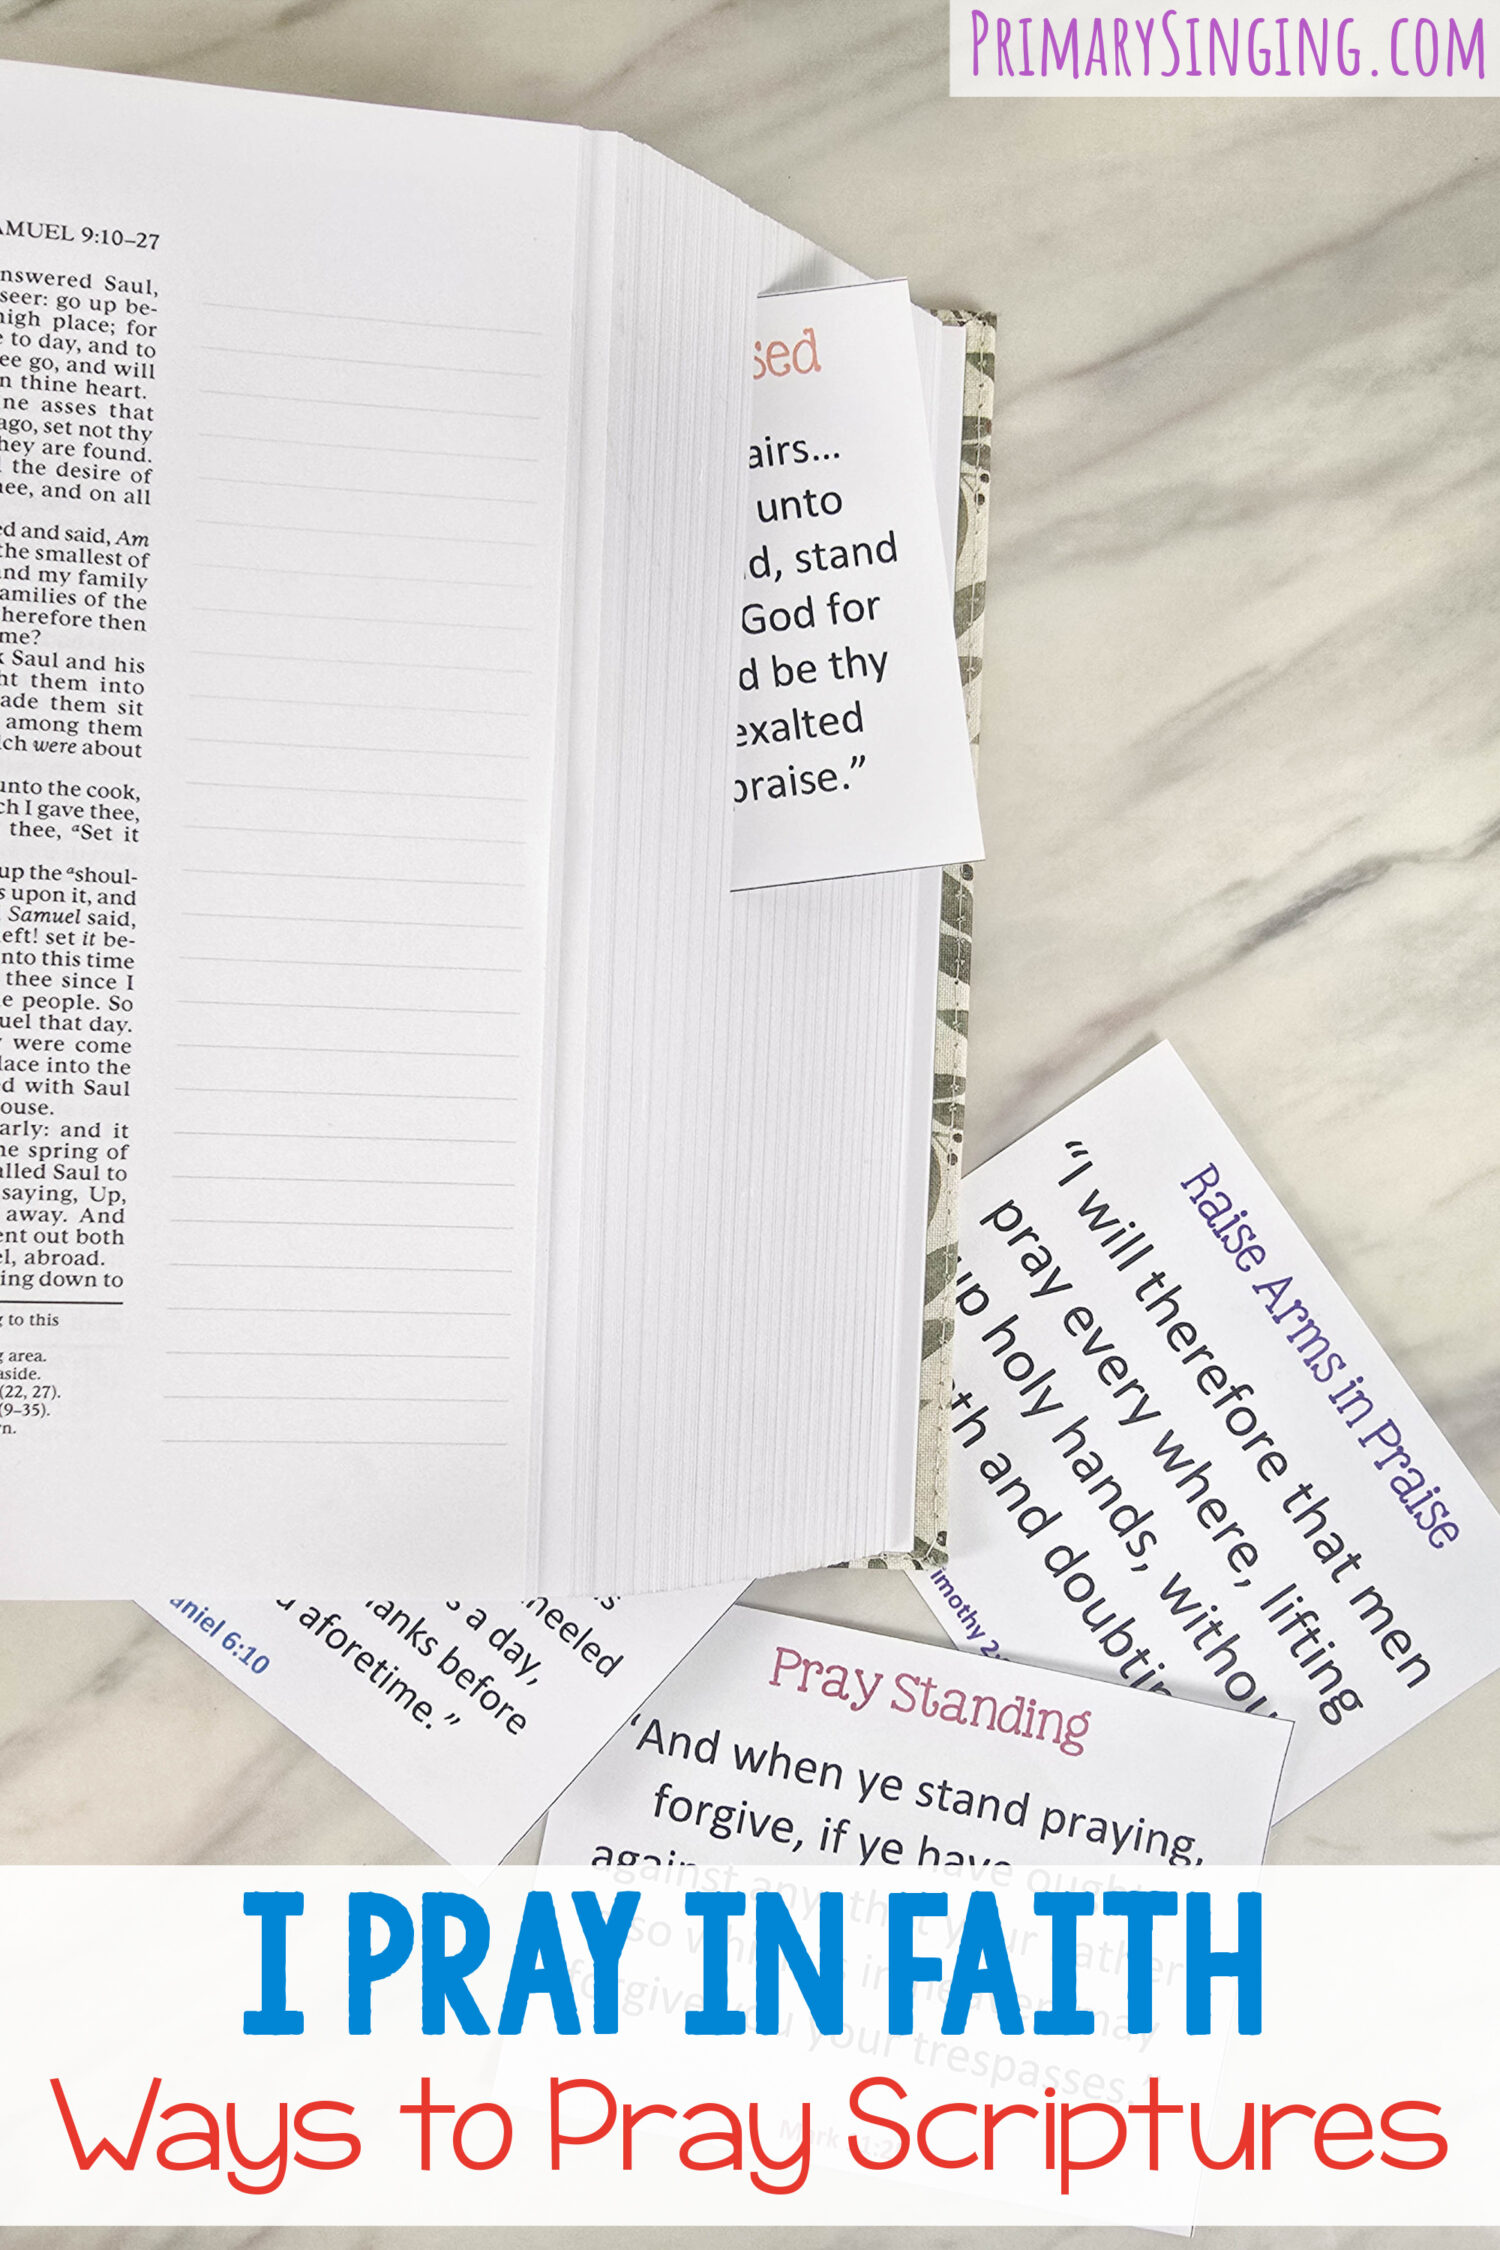 PRIMARYSINGING.COM
AMUEL 9:10–27
nswered Saul,
seer: go up be-
high place; for
to day, and to
ee go, and will
n thine heart.
ine asses that
ago, set not thy
hey are found.
the desire of
hee, and on all
ed and said, Am
the smallest of
nd my family
amilies of the
herefore then
me?
Saul and his
ht them into
ade them sit
among them
ich were about
unto the cook,
ch I gave thee,
thee, ᵃSet it
up the ᵃshoul-
s upon it, and
Samuel said,
eft! set it be-
nto this time
thee since I
e people. So
uel that day.
were come
lace into the
d with Saul
ouse.
arly: and it
he spring of
alled Saul to
saying, Up,
away. And
ent out both
el, abroad.
ing down to
to this
area.
aside.
(22, 27).
(9–35).
n.
sed
airs...
unto
d, stand
God for
d be thy
exalted
praise.”
Raise Arms in Praise
“I will therefore that men
pray every where, lifting
up holy hands, withou
th and doubtin
imothy 2:
kneeled
s a day,
hanks before
d aforetime.”
aniel 6:10
Pray Standing
“And when ye stand praying,
forgive, if ye have ought
against any: that your Father
also which is in heaven may
forgive you your trespasses.”
Mark 11:2
I PRAY IN FAITH
Ways to Pray Scriptures